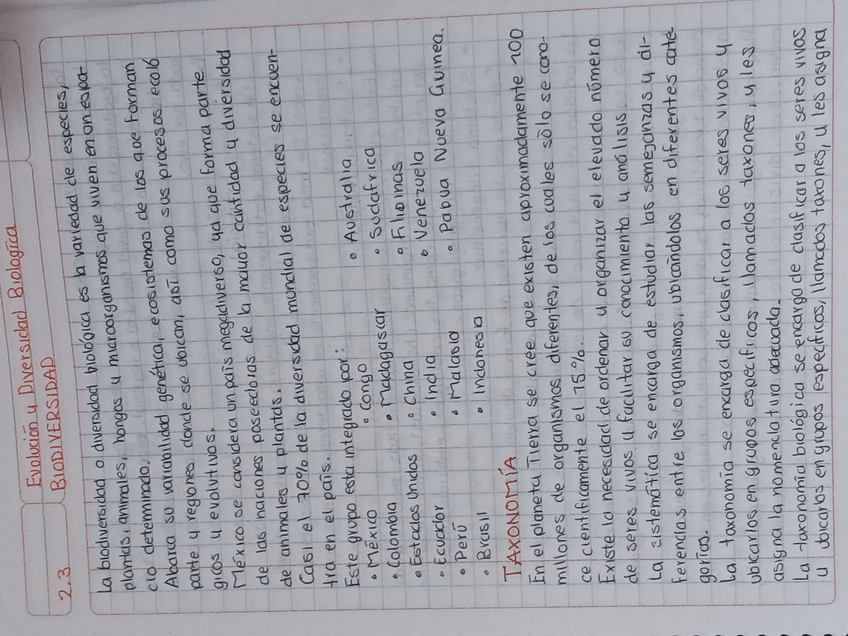 Evolución y Diversidad Biológica
2.3 BIODIVERSIDAD
La biodiversidad o diversidad biológica es la variedad de especies,
plantas, animales, hongos y microorganismos que viven en un espa-
cio determinado.
Abarca su variabilidad genética, ecosistemas de los que forman
parte y regiones donde se ubican, así como sus procesos ecoló
gicos y evolutivos.
México se considera un país megadiverso, ya que forma parte
de las naciones poseedoras de la mayor cantidad y diversidad
de animales y plantas.
Casi el 70% de la diversidad mundial de especies se encuen-
tra en el país.
Este grupo esta integrado por:
• México • Congo • Australia
• Colombia • Madagascar • Sudafrica
• Estados Unidos • China • Filipinas
• Ecuador • India • Venezuela
• Perú • Malasia • Papua Nueva Guinea.
• Brasil • Indonesia
TAXONOMÍA
En el planeta Tierra se cree que existen aproximadamente 100
millones de organismos diferentes, de los cuales sólo se cono-
ce cientificamente el 15%.
Existe la necesidad de ordenar y organizar el elevado número
de seres vivos y facilitar su conocimiento y análisis.
La sistemática se encarga de estudiar las semejanzas y di-
ferencias entre los organismos, ubicándolos en diferentes cate-
gorías.
La taxonomía se encarga de clasificar a los seres vivos y
ubicarlos en grupos especificos, llamados taxones, y les
asigna la nomenclatura adecuada.
La taxonomía biológica se encarga de clasificar a los seres vivos
y ubicarlos en grupos especificos, llamados taxones, y les asigna